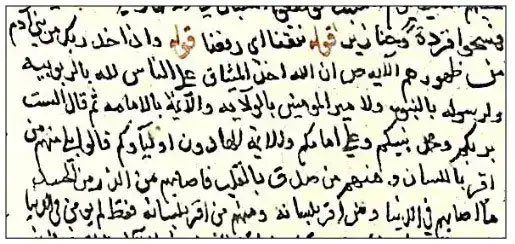 وخنازير قوله نتقنا اي رفعنا قوله واذ اخذ ربك من بني ادم
من ظهورهم الآيه ص ان الله اخذ الميثاق على الناس لله بالربوبيه
ولرسوله بالنبوه ولامير المومنين بالولايه والائمة بالامامه ثم قال الست
بربكم ومحمد نبيكم وعلي امامكم والائمة الهادون اولياؤكم قالوا بلى منهم من
اقر باللسان ومنهم من صدق بالقلب فاصابهم من الذر من الحسد
ما اصابهم في الدنيا ومن اقر بلسانه ومنهم من اقر بلسانه فقط لم يومن في الدنيا